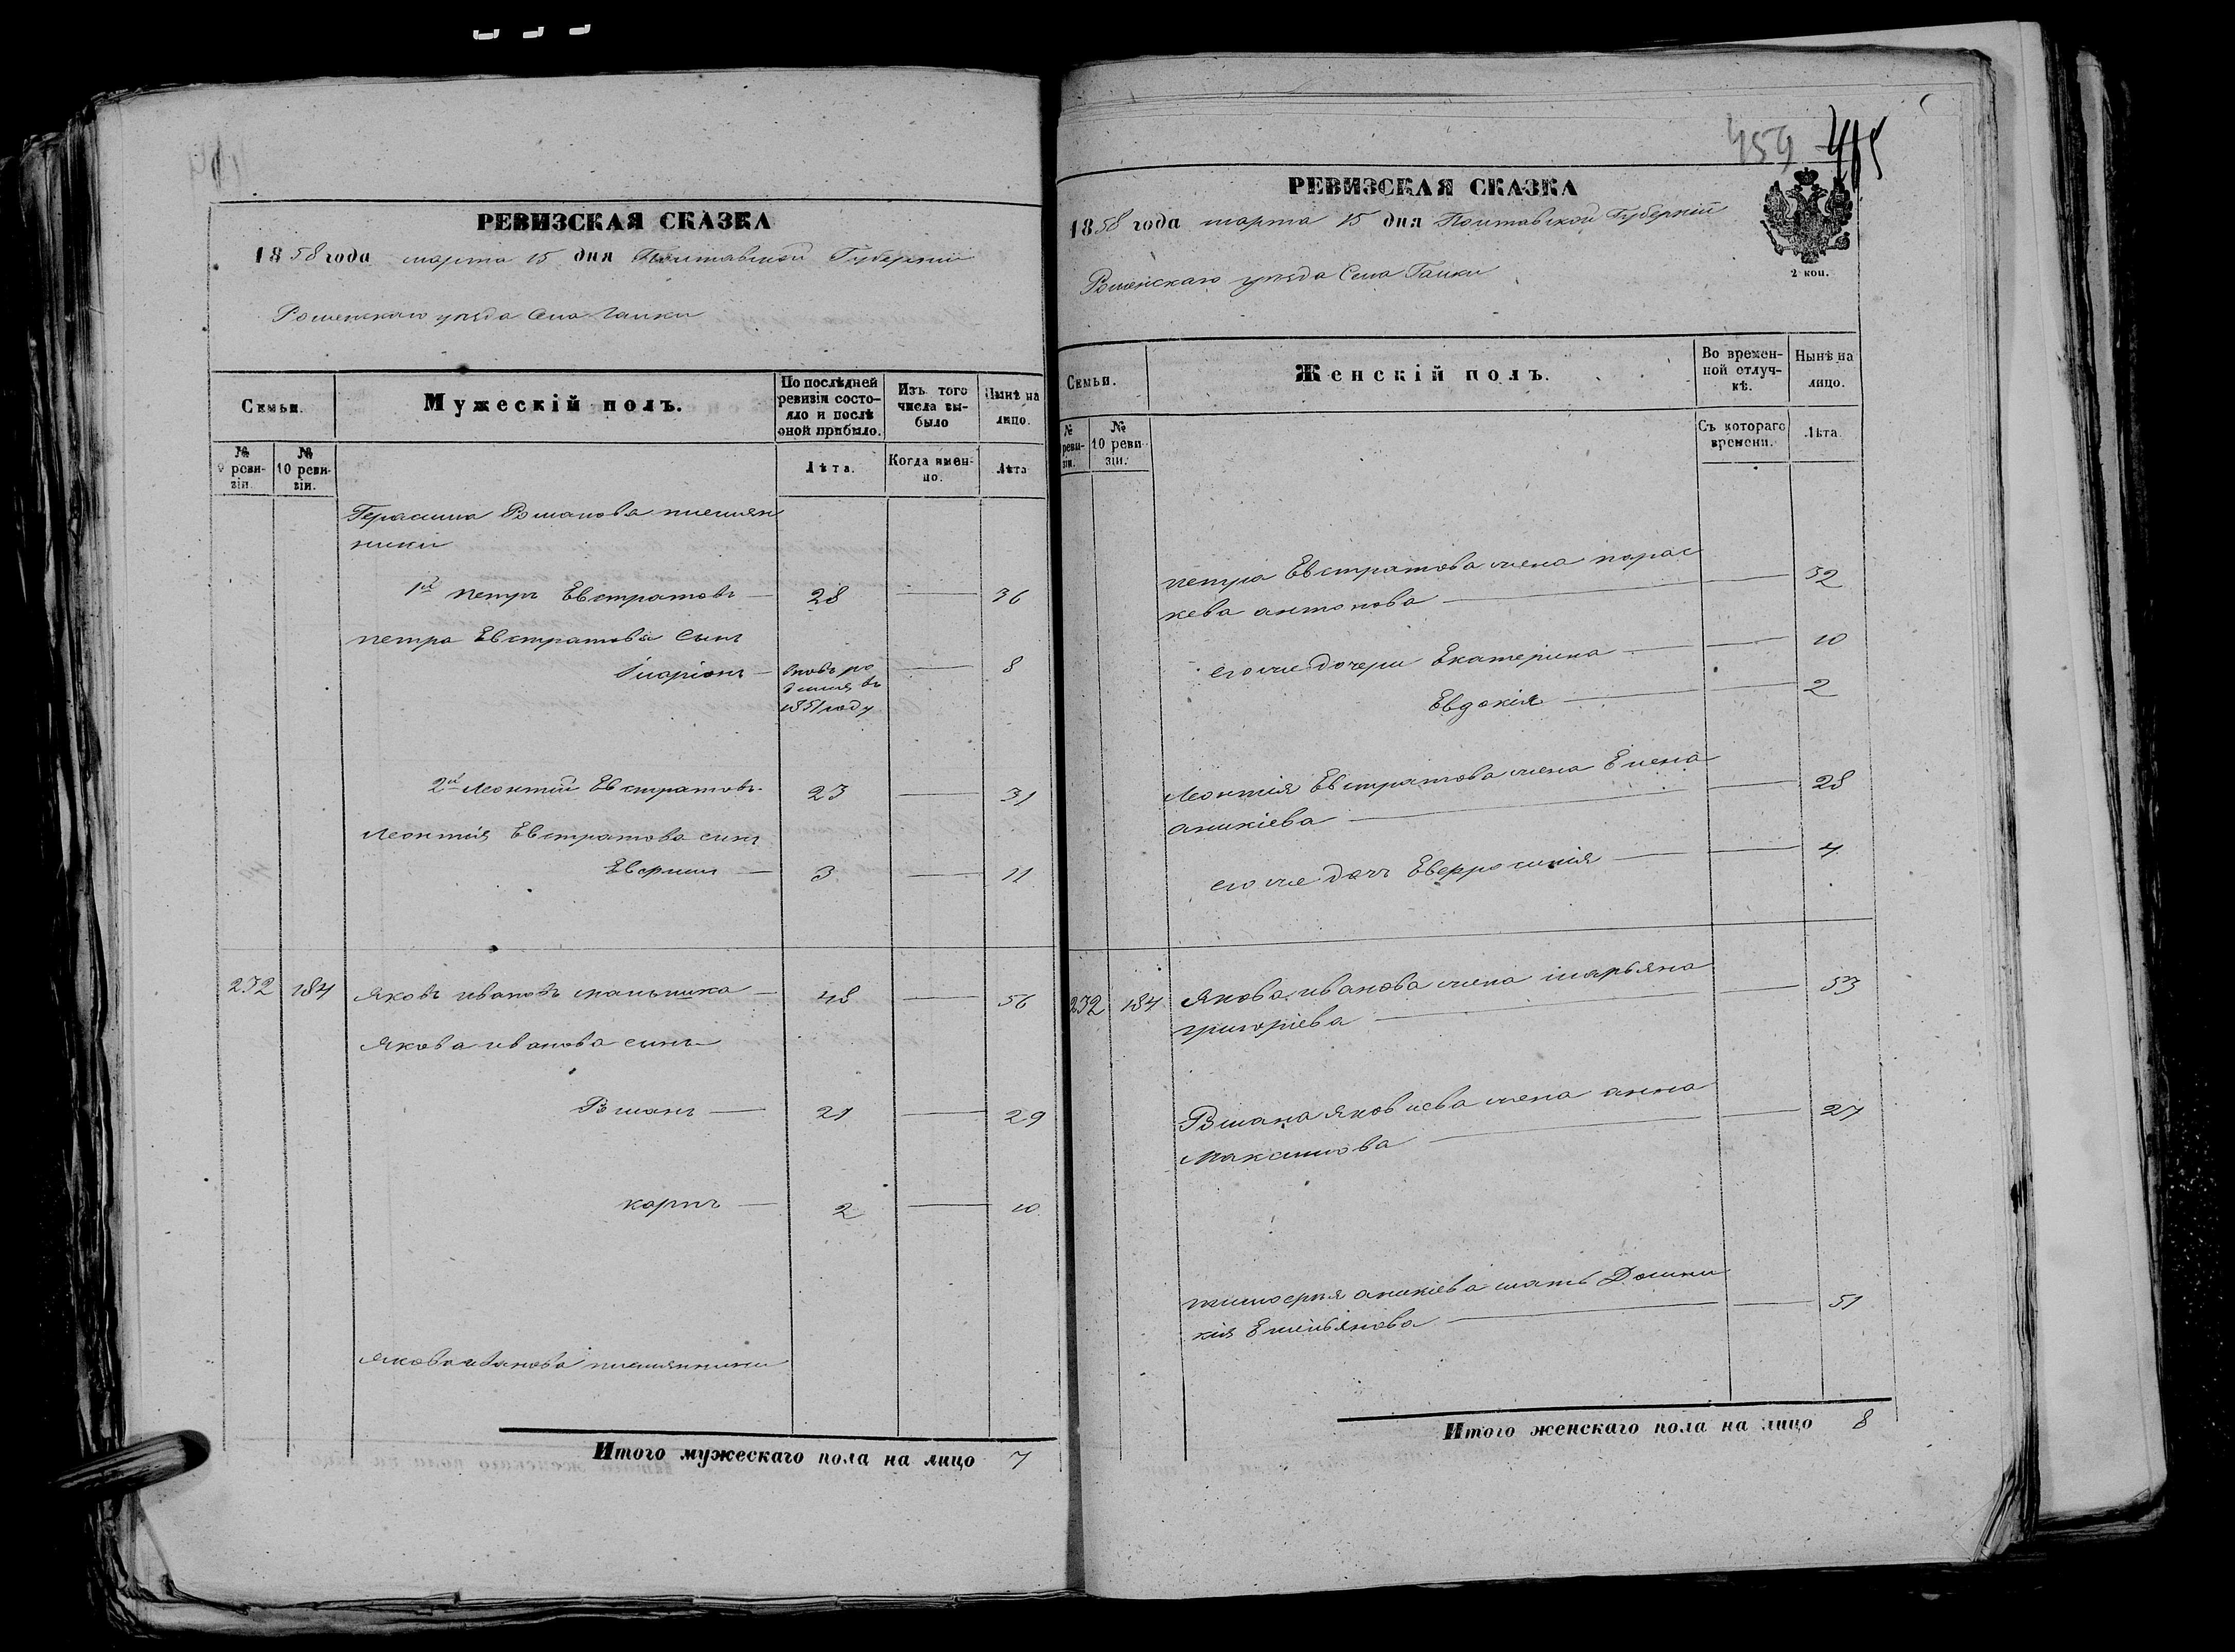 РЕВИЗСКАЯ СКАЗКА
1858 года марта 15 дня Полтавской Губерніи
Роменскаго уѣзда Села Галки
Семьи.
Мужескій полъ.
По послѣдней ревизіи состояло и послѣ оной прибыло.
Изъ того числа выбыло
Нынѣ на лицо.
№ 9 ревизіи.
№ 10 ревизіи.
Лѣта.
Когда именно.
Лѣта
Герасима Романова племян
ники
1й Петръ Евстратовъ — 28 — 36
Петра Евстратова Сынъ
Іларіонъ — вновь ро
дился въ
1851 году — 8
2й Леонтій Евстратовъ 23 — 31
Леонтія Евстратова сынъ
— 3 — 11
232 184 Яковъ Ивановъ — 48 — 56
Якова Иванова сынъ
Романъ — 21 — 29
Карпъ — 2 — 10
Якова Иванова племянники
Итого мужескаго пола на лицо 7
459
РЕВИЗСКАЯ СКАЗКА
1858 года марта 15 дня Полтавской Губерніи
2 коп.
Роменскаго уѣзда Села Галки
Семьи.
Женскій полъ.
Во временной отлучкѣ.
Нынѣ на лицо.
№ ревизіи.
№ 10 ревизіи.
Съ котораго времени.
Лѣта.
Петра Евстратова жена Парас
кева Антонова — 32
его же дочери Екатерина — 10
Евдокія — 2
Леонтія Евстратова жена Елена
Аникіева — 28
его же дочь — 4
232 184 Якова Иванова жена Марьяна
Григоріева — 53
Романа Яковлева жена Анна
Максимова — 27
Тимофея Аникіева мать Домни
кія Емельянова — 51
Итого женскаго пола на лицо 8